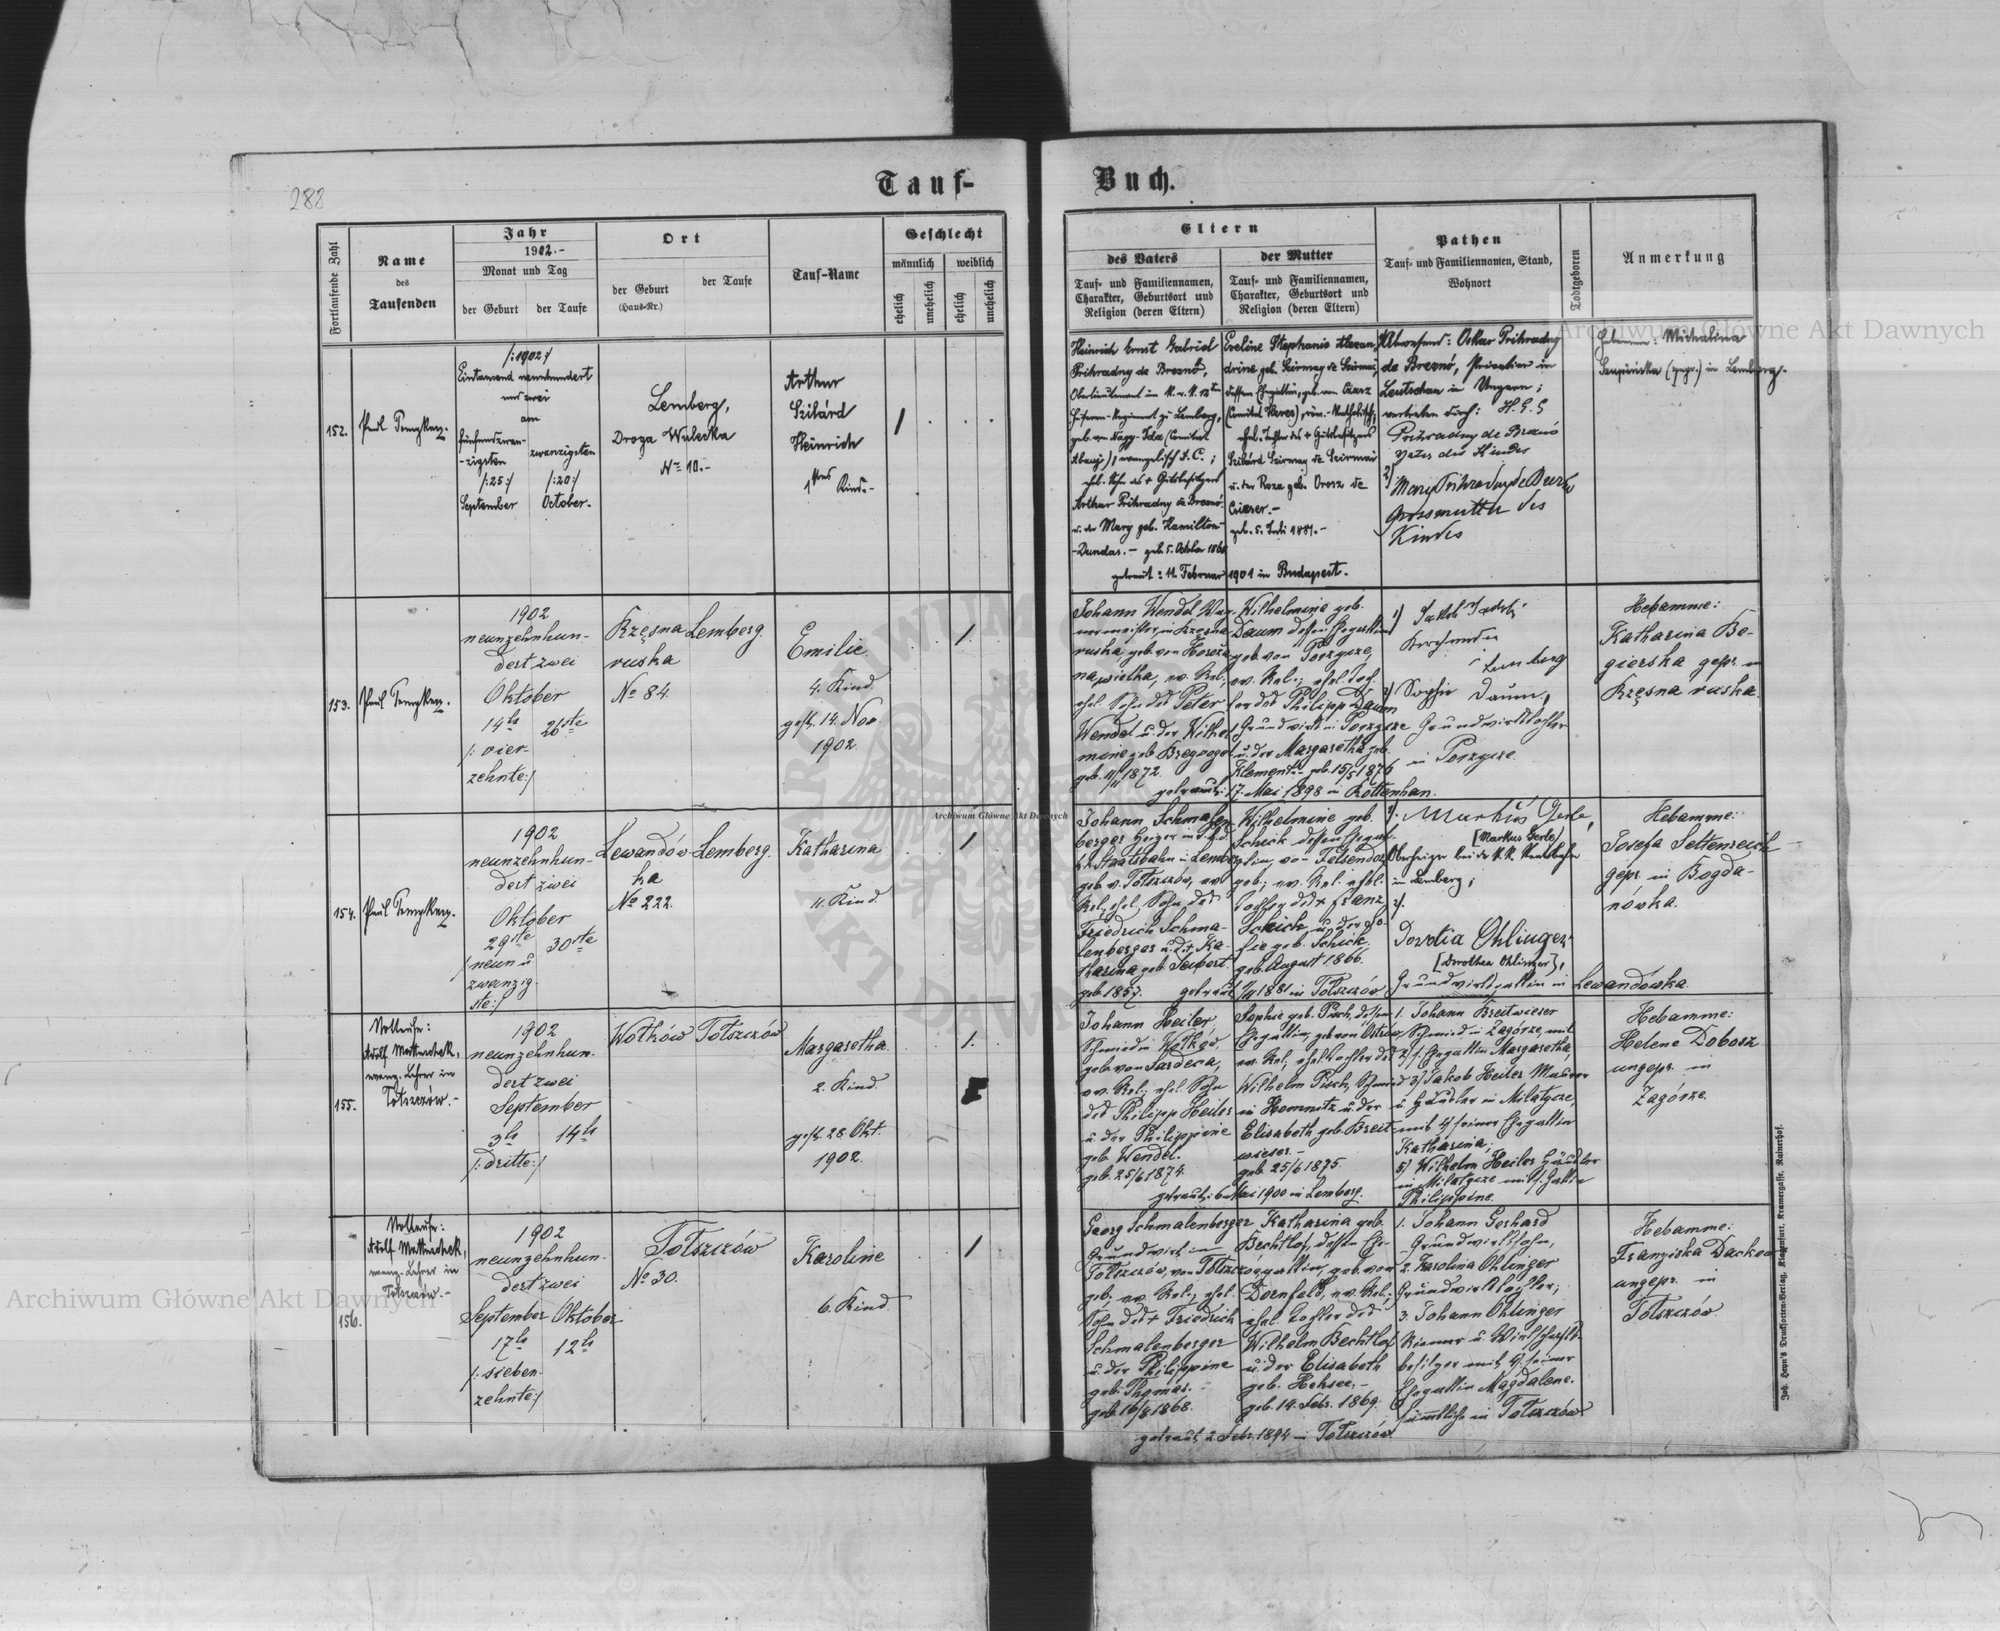 288
Tauf-
Buch.
Fortlaufende Zahl
Name
des
Taufenden
Jahr
1902.-
Monat und Tag
der Geburt
der Taufe
Ort
der Geburt
(Haus-Nr.)
der Taufe
Tauf-Name
Geschlecht
männlich
weiblich
ehelich
unehelich
ehelich
unehelich
Eltern
des Vaters
Tauf- und Familiennamen,
Charakter, Geburtsort und
Religion (deren Eltern)
der Mutter
Tauf- und Familiennamen,
Charakter, Geburtsort und
Religion (deren Eltern)
Pathen
Tauf- und Familiennamen, Stand,
Wohnort
Todtgeboren
Anmerkung
152.
/:1902:/
Eintausend neunhundert
und zwei
am
fünfundzwan-
-zigsten
/:25:/
September
zwanzigsten
/:20:/
October.
Lemberg,
Droga Wulecka
No 10.-
Arthur
Szilárd
Heinrich
1tes Kind.-
Heinrich Ernst Gabriel
Prihradny de Breznó,
Oberlieutenant im
Husaren-Regiment zu Lemberg,
geb. von Nagy-Ida (Comitat
Abauj), evangelisch A.C.;
ehel. Sohn des + Gutsbesitzers
Arthur Prihradny de Breznó
u. der Mary geb. Hamilton-
-Dundas.- geb. 5. October
getraut: 11. Februar 1901 in Budapest.
Eveline Stephanie Alexan-
drine geb. Szirmay de Szirma,
dessen Ehegattin, geb. von
(Comitat Heves), röm.-katholisch;
ehel. Tochter des + Gutsbesitzers
Szilárd Szirmay de Szirma
u. der Roza geb. Orosz de
Csicser.-
geb. 5. Juli 1881.-
Oskar Prihradny
de Breznó, Privatier in
Leutschau in Ungarn;
vertreten durch: H. E. G
Prihradny de Brezno
Vater des Kindes
2) Mary Prihradny de Brezno
Grossmutter des
Kindes
Hebamme: Michalina
(gepr.) in Lemberg.-
153.
1902
neunzehnhun-
dert zwei
Oktober
14te
/: vier-
zehnte:/
26ste
Rzęsna
ruska
No 84.
Lemberg.
Emilie.
4. Kind.
gest. 14. Nov.
1902.
Johann Wendel
in Rzęsna
ruska, geb. von
ev. Rel.,
ehel. Sohn des Peter
Wendel u. der Wilhel-
mine geb.
geb. 1872.
Wilhelmine geb.
Daum dessen Ehegattin
geb. von Porzycze,
ev. Rel., ehel. Toch-
ter des Philipp Daum
Grundwirth in Porzycze
u. der Margaretha geb.
Klement.- geb. 15/5 1876
getraut: 17. Mai 1898 in Rottenhan.
1)
Lemberg
2) Sophie Daum,
Grundwirthstochter
in Porzycze.
Hebamme:
Katharina Be-
gierska gepr. in
Rzęsna ruska.
154.
1902
neunzehnhun-
dert zwei
Oktober
29ste
/neun u
zwanzig-
ste:/
30ste
Lewandów-
ka
No 222.
Lemberg.
Katharina
11. Kind.
Johann Schmalen-
berger Heizer
Staatsbahn in Lemberg
geb. v. Tołszczów, ev.
Rel., ehel. Sohn des
Friedrich Schma-
lenberger u. d. + Ka-
tharina geb. Seibert.
geb. 1857.
Wilhelmine geb.
Schick dessen Ehegat-
tin, von Falsendorf
geb., ev. Rel. ehel.
Tochter des + Franz
Schick u. der So-
fie geb. Schick.
geb. August 1866.
getraut 1881 in Tołszczów.
1). Markus Gerle,
[Markus Gerle]
Oberheizer bei der k.k. Staatsbahn
in Lemberg;
2).
Dorotia Ohlinger
[Dorothea Ohlinger],
Grundwirthsgattin in Lewandówka.
Hebamme:
Josefa Settenreich
gepr. in Bogda-
nówka.
155.
Volltaufe:
evang. Lehrer in
Tołszczów.-
1902
neunzehnhun-
dert zwei
September
3te
/: dritte:/
14te
Wołków
Tołszczów
Margaretha.
2. Kind.
gest. 28 Okt.
1902.
Johann Heiler,
Schmied in Wołków
geb. von Sardeca,
ev. Rel., ehel. Sohn
des Philipp Heiler
u. der Philippine
geb. Wendel.
geb. 25/6 1874.
Sophie geb. Pisch, dessen
Ehegattin, geb. von Ostrów,
ev. Rel., ehel. Tochter des
Wilhelm Pisch, Schmied
in Hommitz u. der
Elisabeth geb. Breit-
wieser.-
geb. 25/6 1875.
getraut: 6. Mai 1900 in Lemberg.
1. Johann Breitwieser
Schmied in Zagórze, mit
2/ s. Ehegattin Margaretha,
3/ Jakob Heiler Maurer
u. Häusler in Miłatycze,
mit 4/ seiner Ehegattin
Katharina;
5/ Wilhelm Heiler Häusler
in Miłatycze mit s. Gattin
Philippine.
Hebamme:
Helene Dobosz
ungepr. in
Zagórze.
156.
Volltaufe:
evang. Lehrer in
Tołszczów.-
1902
neunzehnhun-
dert zwei
September
17te
/: sieben-
zehnte:/
Oktober
12te
Tołszczów
No 30.
Karoline
6. Kind.
Georg Schmalenberger
Grundwirth in
Tołszczów, von Tołszczów
geb., ev. Rel., ehel.
Sohn des + Friedrich
Schmalenberger
u. der Philippine
geb. Thomas.-
geb. 16/8 1868.
Katharina geb.
Bechtlof, dessen Ehe-
gattin, geb. von
Dornfeld, ev. Rel.;
ehel. Tochter des
Wilhelm Bechtlof
u. der Elisabeth
geb. Heksee.-
geb. 14. Febr. 1869.
getraut 2. Febr. 1894 in Tołszczów.
1. Johann Gerhard
Grundwirthssohn,
2. Karolina Ohlinger
Grundwirthstochter;
3. Johann Ohlinger
Riemer u. Wirthschafts-
besitzer mit 4/ seiner
Ehegattin Magdalene.
sämmtliche in Tołszczów
Hebamme:
Franziska Daćkow
ungepr. in
Tołszczów.
Joh. Heyn's Drucksorten-Verlag, Klagenfurt, Kramergasse, Rainerhof.
Archiwum Główne Akt Dawnych
Archiwum Główne Akt Dawnych
Archiwum Główne Akt Dawnych